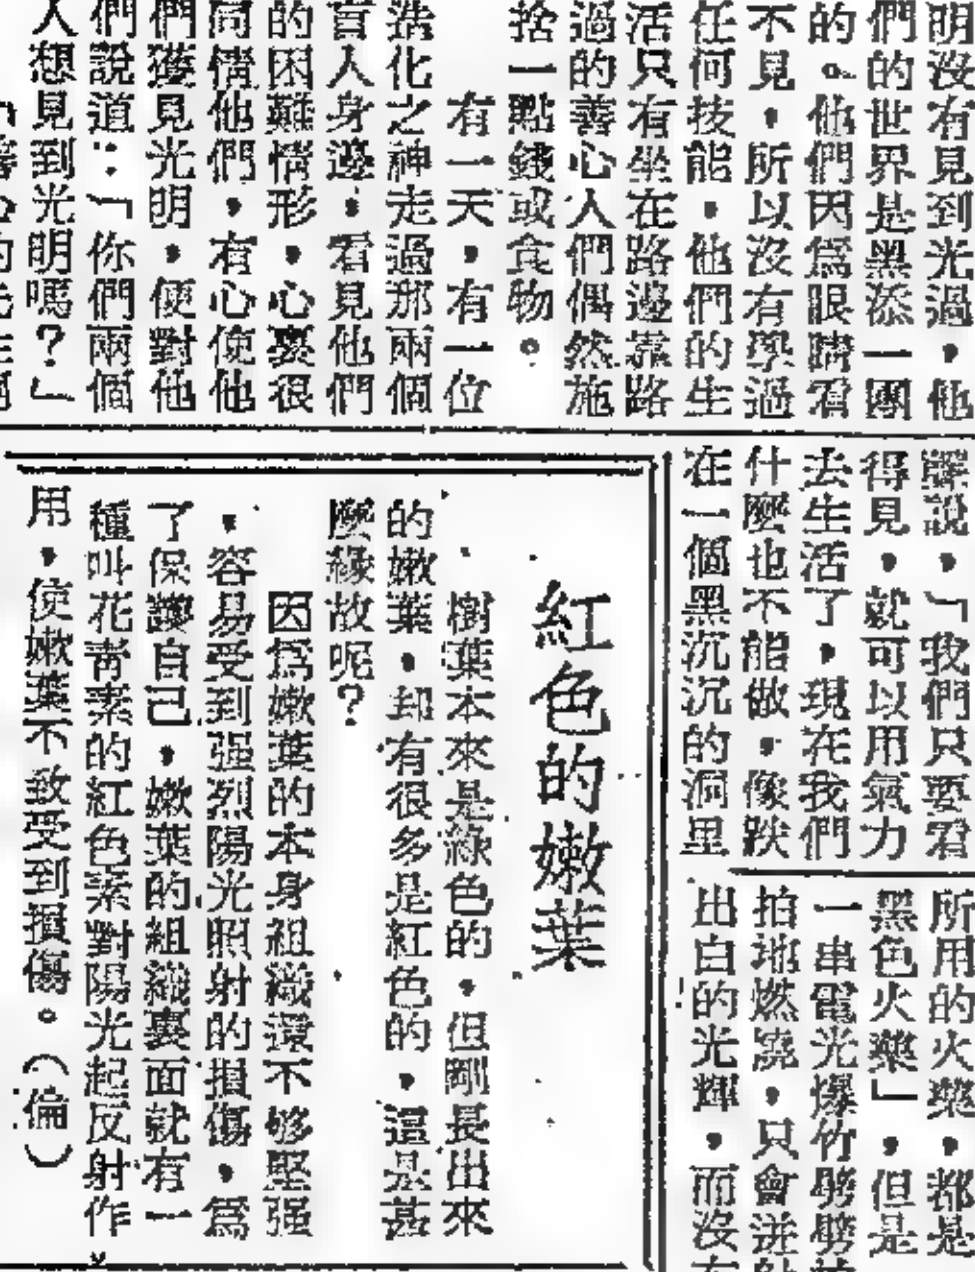 明沒有見到光過，他
們的世界是黑漆一團
的。他們因爲眼睛看
不見，所以沒有學過
任何技能，他們的生
活只有坐在路邊靠路
過的善心人們偶然施
捨一點錢或食物。
有一天，有一位
造化之神走過那兩個
盲人身邊，看見他們
的困難情形，心裏很
同情他們，有心使他
們獲見光明，便對他
們說道：「你們兩個
人想見到光明嗎？」
解說，「我們只要看
得見，就可以用氣力
去生活了，現在我們
什麼也不能做，像跌
在一個黑沉沉的洞里
所用的火藥，都是
黑色火藥」，但是
一串電光爆竹劈劈
拍地燃燒，只會迸
出白的光輝，而沒
紅色的嫩葉
樹葉本來是綠色的，但剛長出來
的嫩葉，却有很多是紅色的，這是甚
麼緣故呢？
因爲嫩葉的本身組織還不够堅强
，容易受到强烈陽光照射的損傷，爲
了保護自己，嫩葉的組織裏面就有一
種叫花青素的紅色素對陽光起反射作
用，使嫩葉不致受到損傷。（倫）